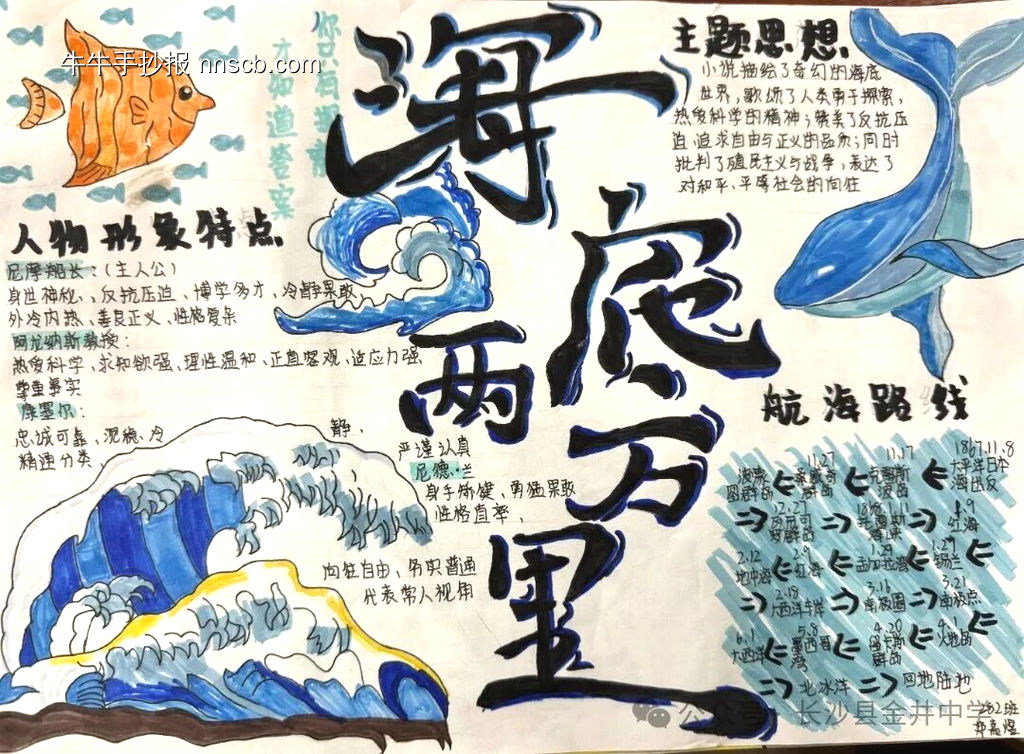 牛牛手抄报 nnscb.com
你只有
才知道答案
海底两万里
主题思想
小说描绘了奇幻的海底
世界，歌颂了人类勇于探索，
热爱科学的精神；赞美了反抗压
迫、追求自由与正义的品质；同时
批判了殖民主义与战争，表达了
对和平、平等社会的向往
人物形象特点
尼摩船长：（主人公）
身世神秘、反抗压迫、博学多才、冷静果敢
外冷内热、善良正义、性格复杂
阿龙纳斯教授：
热爱科学、求知欲强、理性温和、正直客观、适应力强
尊重事实
康塞尔：
忠诚可靠、沉稳、冷静、严谨认真
精通分类、
尼德·兰
身手矫健、勇猛果敢
性格直率、
向往自由、务实普通
代表常人视角
航海路线
1867.11.8
太平洋日本
海出发
11.17
克雷斯
波岛
11.27
波蒙
图群岛
12.27
1868.1.11
红海
1.29
锡兰
孟加拉湾
2.9
红海
2.12
地中海
2.18
大西洋
3.16
南极圈
3.21
南极点
4.1
火地岛
4.20
群岛
5.8
墨西哥
湾
6.1
大西洋
北冰洋
回地陆地
公众号：长沙县金井中学